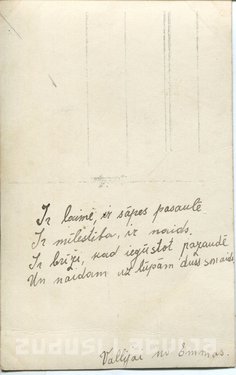 Ir laime, ir sāpes pasaulē
Ir mīlestība, ir naids.
Ir brīži, kad iegūstot pazaudē
Un naidam uz lūpām dušs smaids
Vallijai no Emmas.